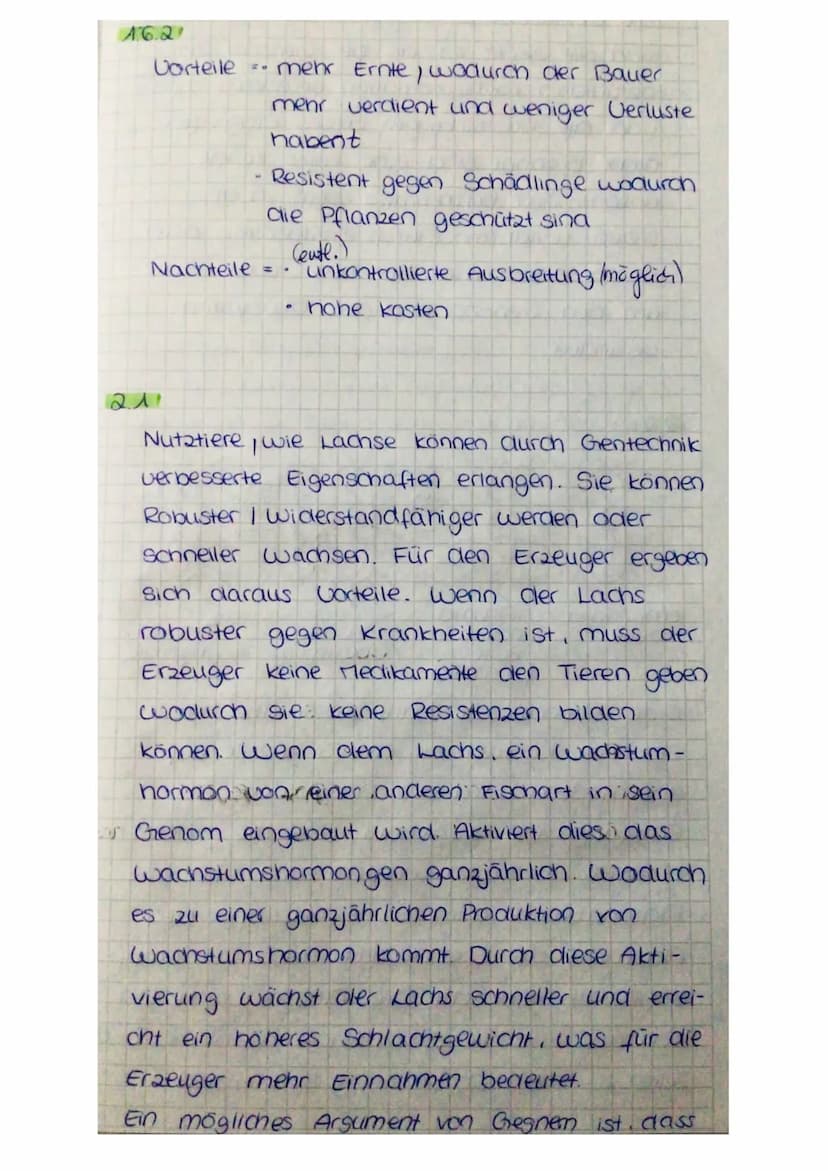 1.6.2
Vorteile = · mehr Ernte, wodurch der Bauer
mehr verdient und weniger Verluste
habent
- Resistent gegen Schädlinge wodurch
die Pflanzen geschützt sind
(evtl.)
Nachteile = · unkontrollierte Ausbreitung (möglich)
· hohe kosten
2.1
Nutztiere, wie Lachse können durch Gentechnik
verbesserte Eigenschaften erlangen. Sie können
Robuster / widerstandfähiger werden oder
schneller wachsen. Für den Erzeuger ergeben
sich daraus Vorteile. Wenn der Lachs
robuster gegen Krankheiten ist, muss der
Erzeuger keine Medikamente den Tieren geben
wodurch sie keine Resistenzen bilden
können. Wenn dem Lachs, ein Wachstum-
hormon von einer anderen Fischart in sein
Genom eingebaut wird. Aktiviert dies das
Wachstumshormongen ganzjährlich. Wodurch
es zu einer ganzjährlichen Produktion von
Wachstumshormon kommt. Durch diese Akti-
vierung wächst der Lachs schneller und errei-
cht ein höheres Schlachtgewicht, was für die
Erzeuger mehr Einnahmen bedeutet.
Ein mögliches Argument von Gegnen ist, dass